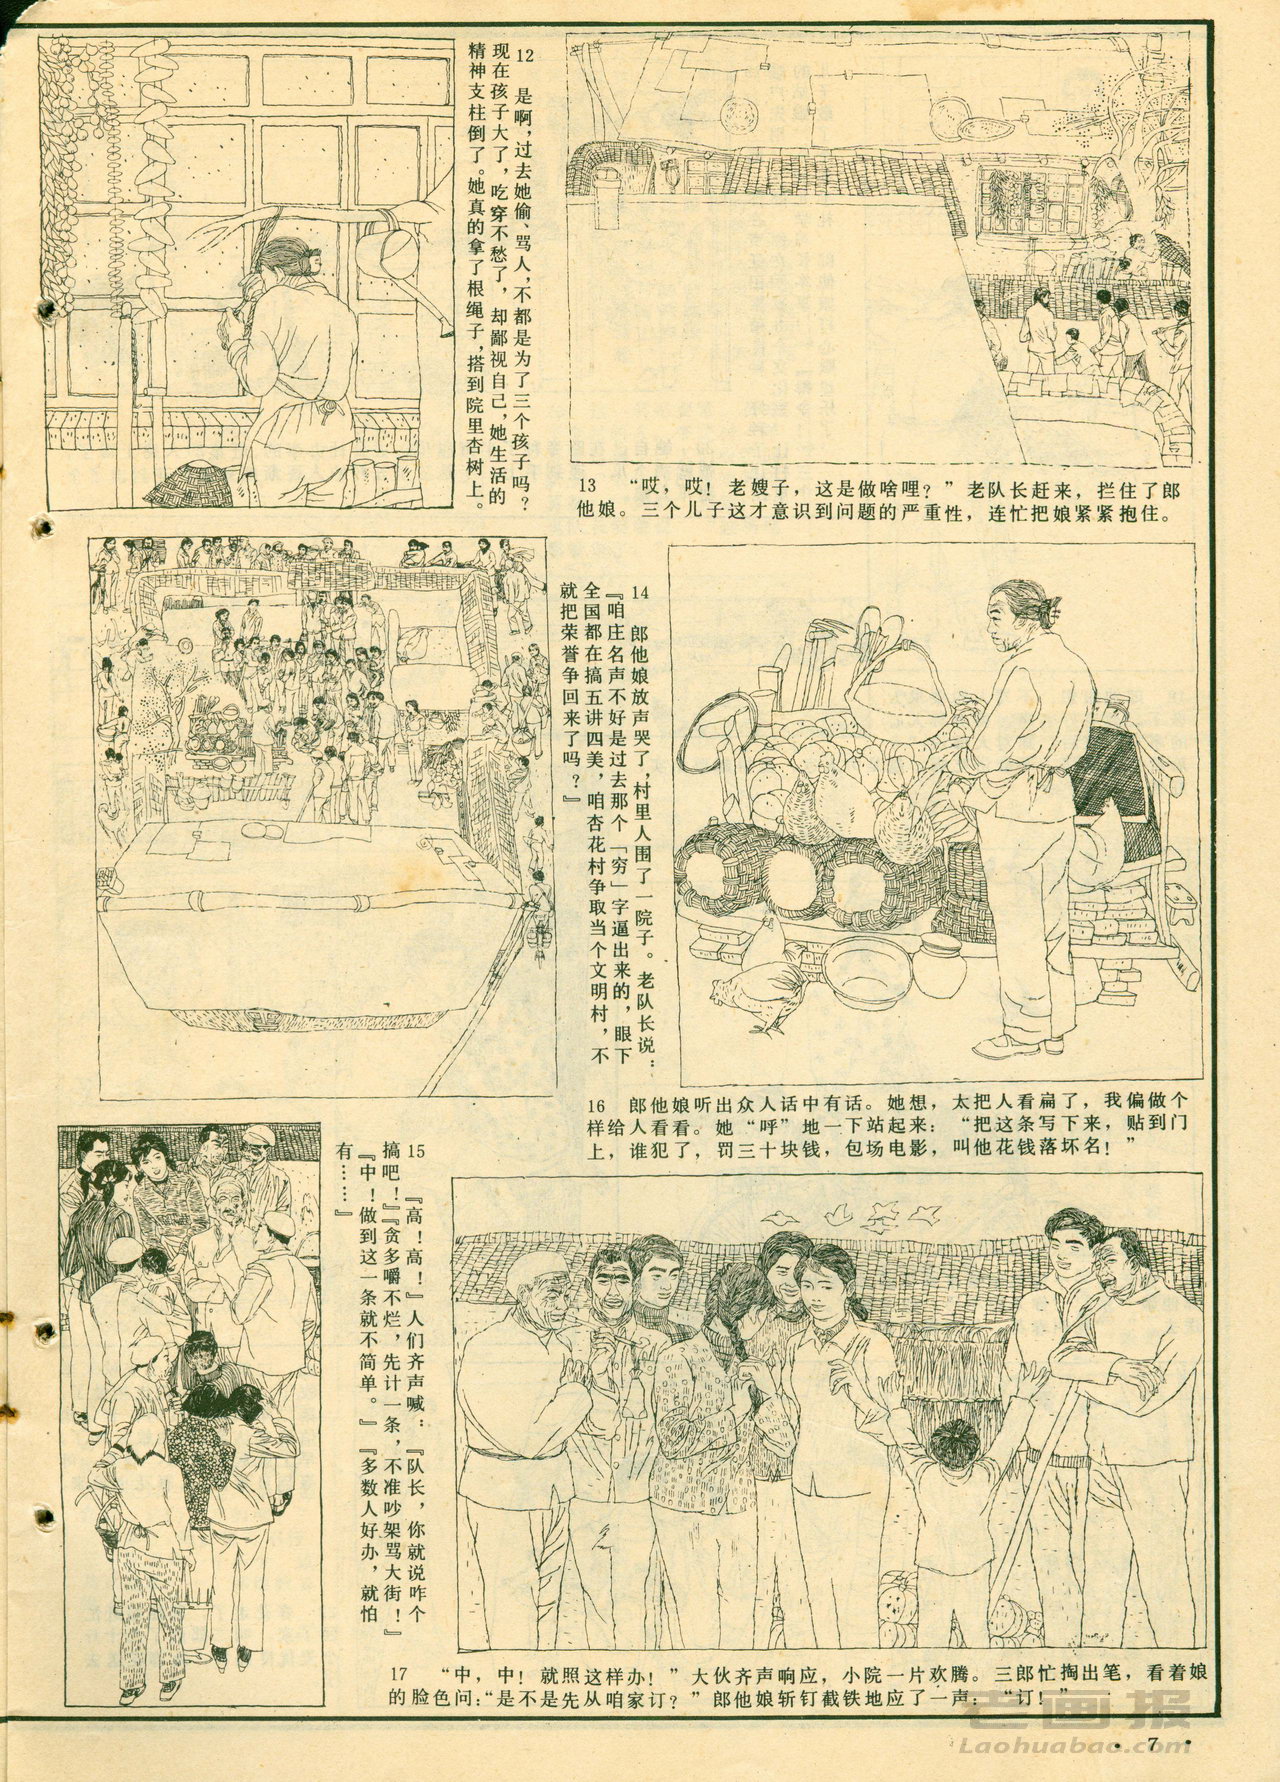 12 是啊，过去她偷、骂人，不都是为了三个孩子吗？
现在孩子大了，吃穿不愁了，却鄙视自己，她生活的
精神支柱倒了。她真的拿了根绳子，搭到院里杏树上。
13 “哎，哎！老嫂子，这是做啥哩？”老队长赶来，拦住了郎
他娘。三个儿子这才意识到问题的严重性，连忙把娘紧紧抱住。
14 郎他娘放声哭了，村里人围了一院子。老队长说：
『咱庄名声不好是过去那个「穷」字逼出来的，眼下
全国都在搞五讲四美，咱杏花村争取当个文明村，不
就把荣誉争回来了吗？』
15 『高！高！』人们齐声喊：『队长，你就说咋个
搞吧！』『贪多嚼不烂，先计一条，不准吵架骂大街！』
『中！做到这一条就不简单。』『多数人好办，就怕
有……』
16 郎他娘听出众人话中有话。她想，太把人看扁了，我偏做个
样给人看看。她“呼”地一下站起来：“把这条写下来，贴到门
上，谁犯了，罚三十块钱，包场电影，叫他花钱落坏名！”
17 “中，中！就照这样办！”大伙齐声响应，小院一片欢腾。三郎忙掏出笔，看着娘
的脸色问：“是不是先从咱家订？”郎他娘斩钉截铁地应了一声：“订！”
老画报
Laohuabao.com
· 7 ·